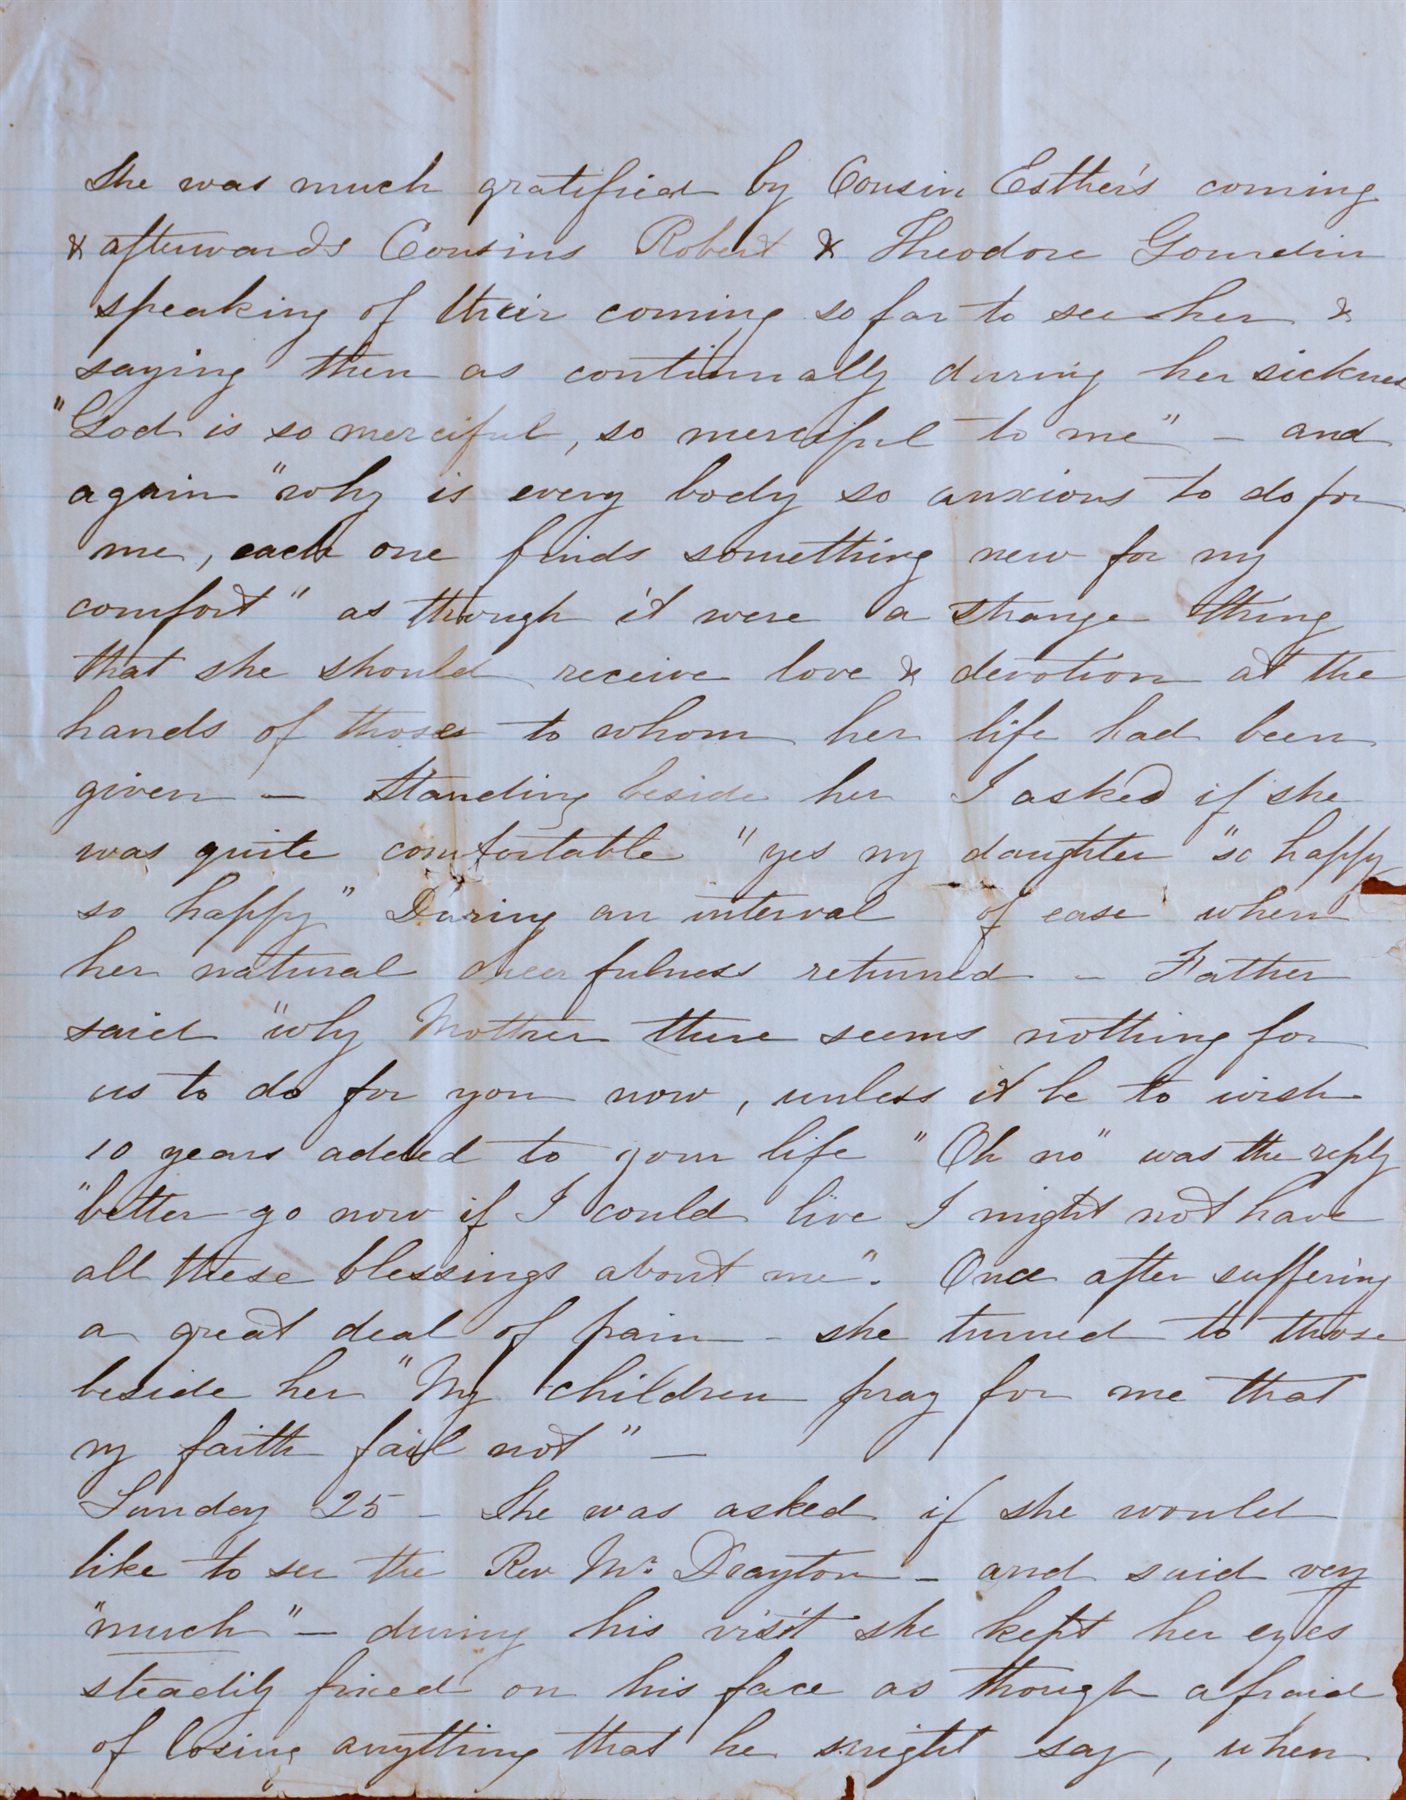 She was much gratified by Cousin Esther's coming
& afterwards Cousins Robert & Theodore Gourdin
speaking of their coming so far to see her &
saying then as continually during her sickness
"God is so merciful, so merciful to me" - and
again "why is every body so anxious to do for
me, each one finds something new for my
comfort" as though it were a strange thing
that she should receive love & devotion at the
hands of those to whom her life had been
given - Standing beside her I asked if she
was quite comfortable "yes my daughter "so happy
so happy" During an interval of ease when
her natural cheerfulness returned - Father
said "why Mother there seems nothing for
us to do for you now, unless it be to wish
10 years added to your life "Oh no" was the reply
"better go now if I could live I might not have
all these blessings about me". Once after suffering
a great deal of pain - she turned to those
beside her "My children pray for me that
my faith fail not" -
Sunday 25 - She was asked if she would
like to see the Rev Mr. Drayton - and said very
"much" - during his visit she kept her eyes
steadily fixed on his face as though afraid
of losing anything that he might say, when